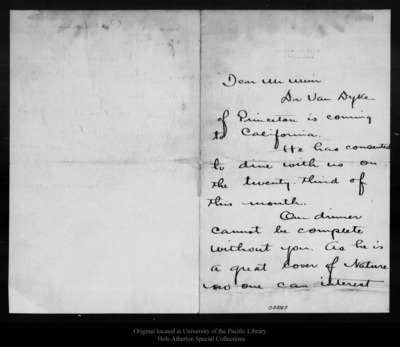 Dear Mr Muir
Dr Van Dyke
of Princeton is coming
to California.
He has consented
to dine with us on
the twenty third of
this month.
Our dinner
cannot be complete
without you. As he is
a great lover of Nature
no one can interest
02847
Original located at University of the Pacific Library
Holt-Atherton Special Collections